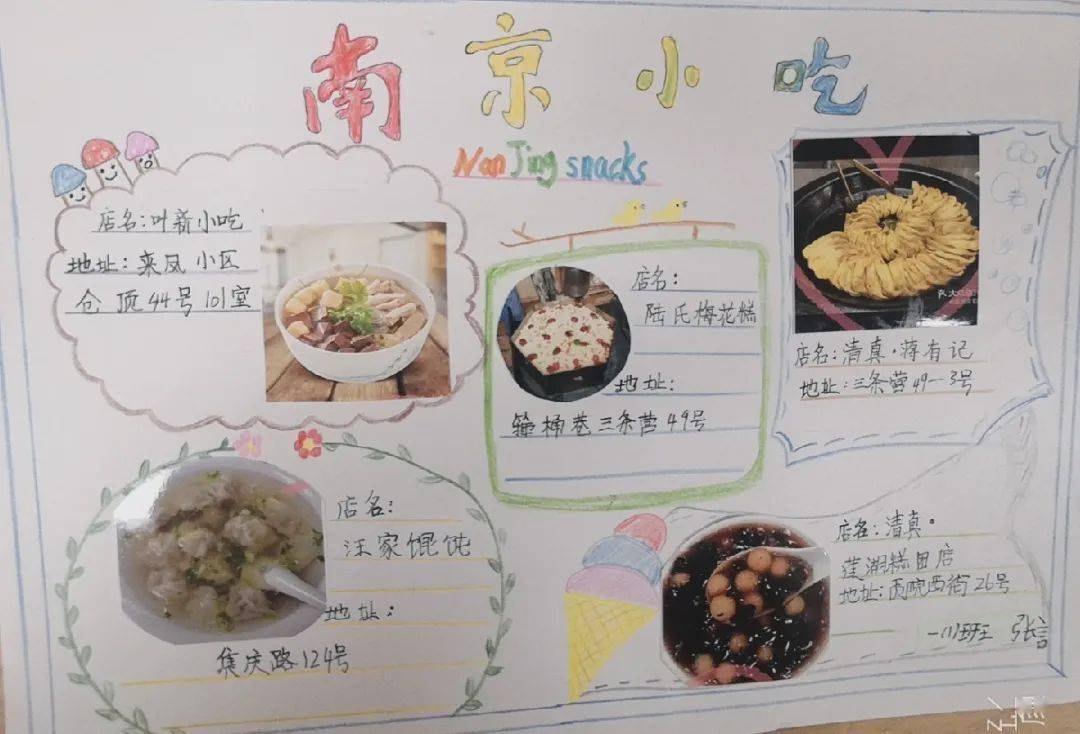 南京小吃
NanJing snacks
店名:叶新小吃
地址:来凤小区
仓顶44号101室
店名:
陆氏梅花糕
地址:
箍桶巷三条营49号
店名:清真·蒋有记
地址:三条营49-3号
店名:
汪家馄饨
地址:
集庆路124号
店名:清真·
莲湖糕团店
地址:贡院西街26号
一(1)班 张言